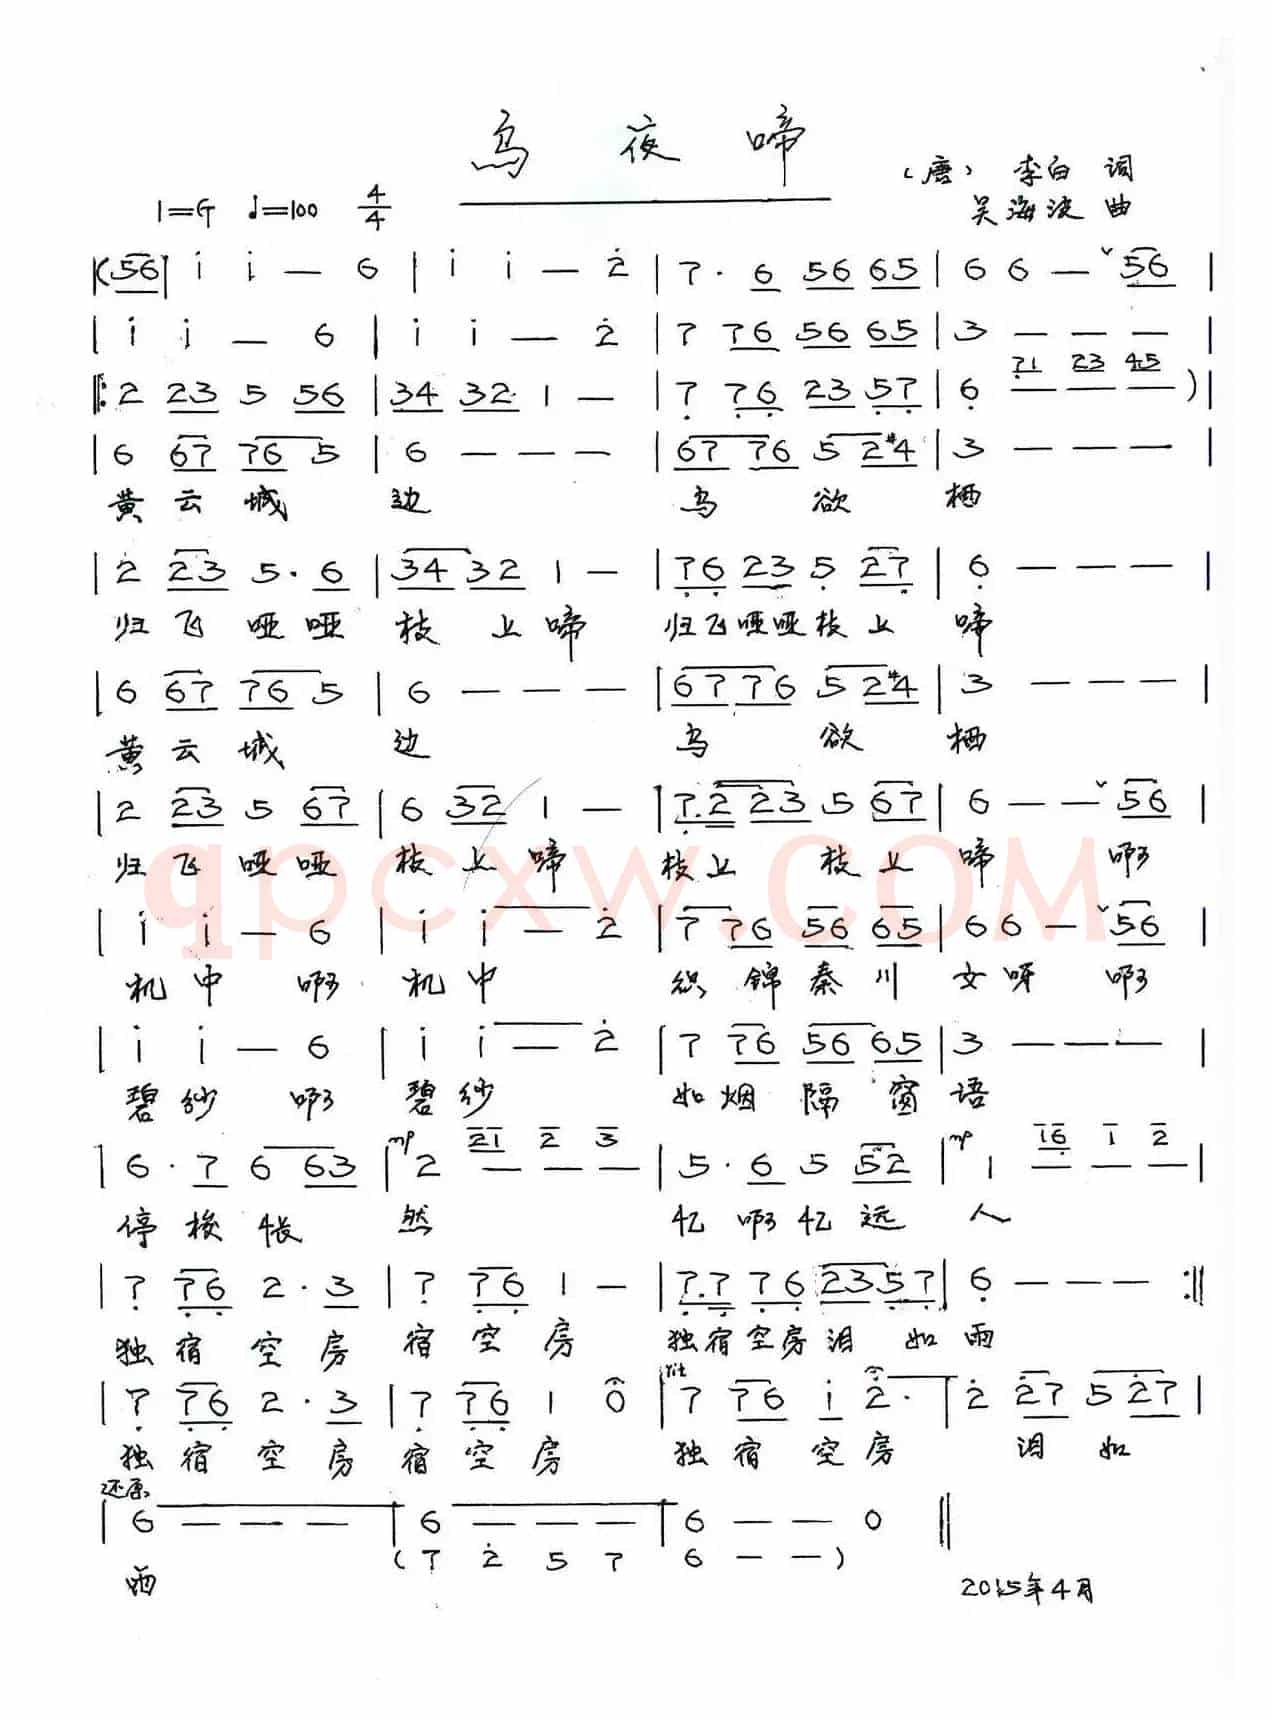 乌夜啼
(唐) 李白 词
1=G ♩=100 4/4
吴海波 曲
|(56| i i — 6 | i i — 2̇ | 7· 6 56 65 | 6 6 — ˇ56 |
| i i — 6 | i i — 2̇ | 7 76 56 65 | 3 — — — |
71 23 45
|: 2 23 5 56 | 34 32 1 — | 7̣ 7̣6̣ 23 5̣7̣ | 6̣ — — — )|
| 6 67 76 5 | 6 — — — | 67 76 5 2#4 | 3 — — — |
黄云城 边 乌 欲 栖
| 2 23 5· 6 | 34 32 1 — | 7̣6̣ 23 5̣ 27̣ | 6̣ — — — |
归飞哑哑 枝上啼 归飞哑哑枝上 啼
| 6 67 76 5 | 6 — — — | 67 76 5 2#4 | 3 — — — |
黄云城 边 乌 欲 栖
| 2 23 5 67 | 6 32 1 — | 7̣·2 23 5 67 | 6 — — ˇ56 |
归飞哑哑 枝上啼 枝上 枝上 啼 啊
| i i — 6 | i i — 2̇ | 7 76 56 65 | 6 6 — ˇ56 |
机中 啊 机中 织锦秦川 女呀 啊
| i i — 6 | i i — 2̇ | 7 76 56 65 | 3 — — — |
碧纱 啊 碧纱 如烟 隔窗 语
mp 21 2 3 mp 16 1 2
| 6· 7 6 63 | 2 — — — | 5· 6 5 52 | 1 — — — |
停梭怅 然 忆啊忆远 人
| 7̣ 7̣6̣ 2· 3 | 7̣ 7̣6̣ 1 — | 7̣·7̣ 7̣6̣ 23 5̣7̣ | 6̣ — — — :||
独宿空房 宿空房 独宿空房泪 如雨
rit
| 7̣ 7̣6̣ 2· 3 | 7̣ 7̣6̣ 1 0 | 7 76 i 2̇· | 2̇ 2̇7 5 2̇7 |
独宿空房 宿空房 独宿空房 泪 如
还原
| 6 — — — | 6 — — — | 6 — — 0 ||
(7 2̇ 5 7 6 — —)
雨
2015年4月